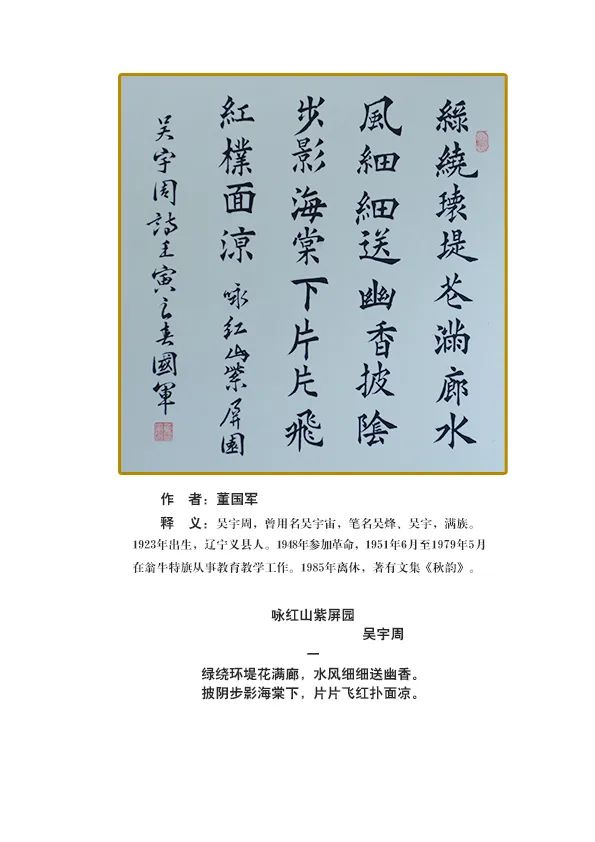 綠繞環堤花滿廊水
風細細送幽香披陰
步影海棠下片片飛
紅撲面涼 咏紅山紫屏園
吴宇周詩壬寅之春國軍
作　者：董国军
释　义：吴宇周，曾用名吴宇宙，笔名吴烽、吴宇，满族。
1923年出生，辽宁义县人。1948年参加革命，1951年6月至1979年5月
在翁牛特旗从事教育教学工作。1985年离休，著有文集《秋韵》。
咏红山紫屏园
吴宇周
一
绿绕环堤花满廊，水风细细送幽香。
披阴步影海棠下，片片飞红扑面凉。